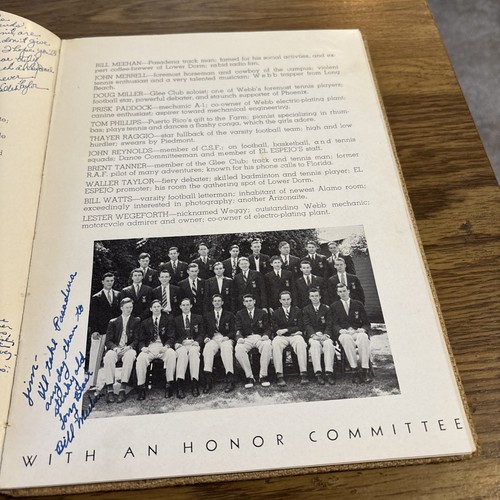 BILL MEEHAN—Pasadena track man, famed for his social activities, and ex-
pert coffee-brewer of Lower Dorm; salad radio fan.
JOHN MERRELL—foremost horseman and cowboy of the campus; violent
tennis enthusiast and very talented musician; Webb trapper from Long
Beach.
DOUG MILLER—Glee Club soloist; one of Webb's foremost tennis players;
football star, powerful debater, and staunch supporter of Phoenix.
PREEK PADDOCK—mechanic A-1; co-owner of Webb electro-plating plant;
canine enthusiast; aspirer toward mechanical engineering.
TOM PHILLIPS—Puerto Rico's gift to the Farm; pianist specializing in rhum-
bas; plays tennis and dances a flashy conga, which the girls adore.
THAYER RAGGIO—star fullback of the varsity football team; high and low
hurdler; swears by Piedmont.
JOHN REYNOLDS—member of C.S.F.; on football, basketball, and tennis
squads; Dance Committeeman and member of EL ESPEJO'S staff.
BRENT TANNER—member of the Glee Club; track and tennis man; former
R.A.F. pilot of many adventures; known for his phone calls to Florida.
WALLER TAYLOR—fiery debater; skilled badminton and tennis player; EL
ESPEJO promoter; his room the gathering spot of Lower Dorm.
BILL WATTS—varsity football letterman; inhabitant of newest Alamo room;
exceedingly interested in photography; another Arizonaite.
LESTER WEGEFORTH—nicknamed Weggy; outstanding Webb mechanic;
motorcycle admirer and owner; co-owner of electro-plating plant.
Jim-
I'll take Pasadena
any day than to
old
Long Beach
Bill
WITH AN HONOR COMMITTEE